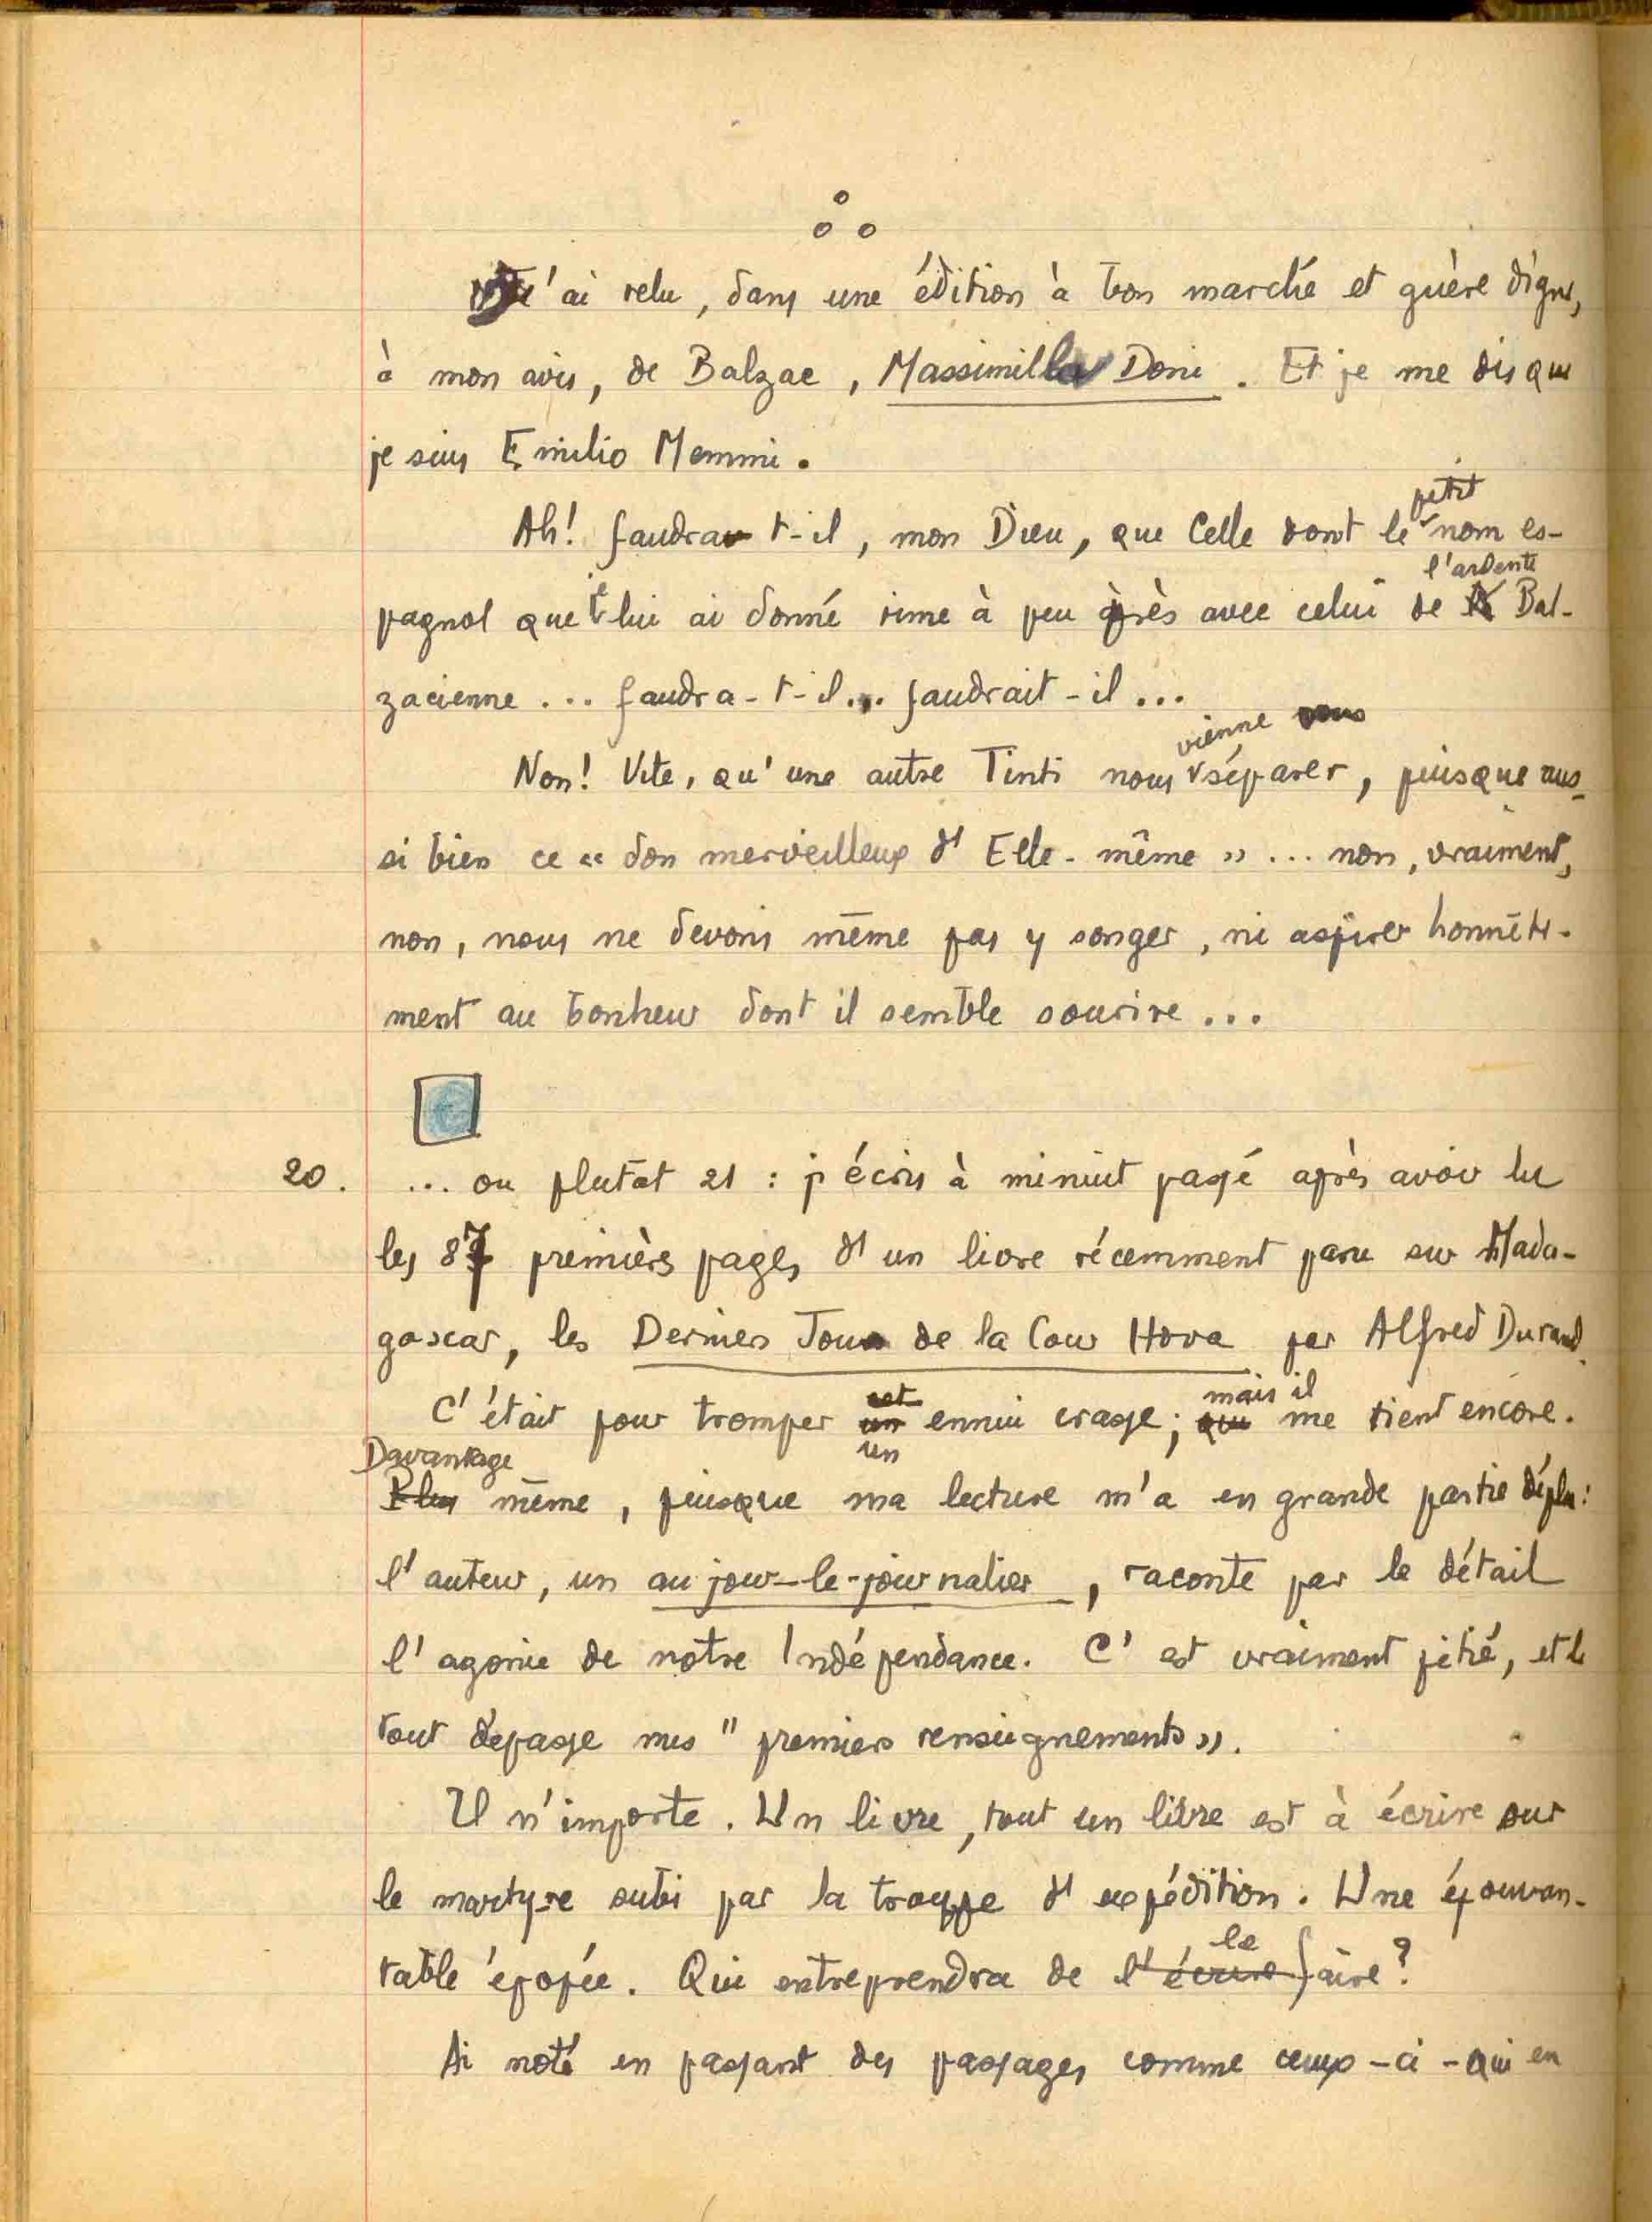 J'ai relu, dans une édition à bon marché et guère digne,
à mon avis, de Balzac, Massimilla Doni. Et je me dis que
je suis Emilio Memmi.
petit
Ah! faudra-t-il, mon Dieu, que Celle dont le nom es-
l'ardente
pagnol que je lui ai donné rime à peu près avec celui de Bal-
zacienne ... faudra-t-il... faudrait-il ...
vienne
Non! Vite, qu'une autre Tinti nous séparer, puisque aus-
si bien ce « don merveilleux d'Elle-même » ... non, vraiment,
non, nous ne devons même pas y songer, ni aspirer honnête-
ment au bonheur dont il semble sourire ...
20. ... ou plutôt 21 : j'écris à minuit passé après avoir lu
les 87 premières pages d'un livre récemment paru sur Mada-
gascar, les Derniers Jours de la Cour Hova par Alfred Durand.
cet mais il
C'était pour tromper un ennui crasse; qui me tient encore.
Davantage un
Plus même, puisque ma lecture m'a en grande partie déplu :
l'auteur, un au jour-le-journalier, raconte par le détail
l'agonie de notre Indépendance. C'est vraiment pitié, et le
tout dépasse mes " premiers renseignements ».
Il n'importe. Un livre, tout un livre est à écrire sur
le martyre subi par la troupe d'expédition. Une épouvan-
le
table épopée. Qui entreprendra de l'écrire faire?
Ai noté en passant des passages comme ceux-ci - qui en